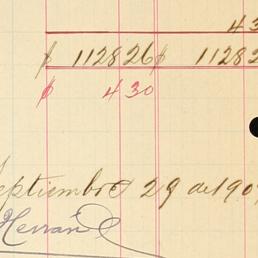 43
$ 112826 $ 11282
$ 430
eptiembre 29 de 190
Herran